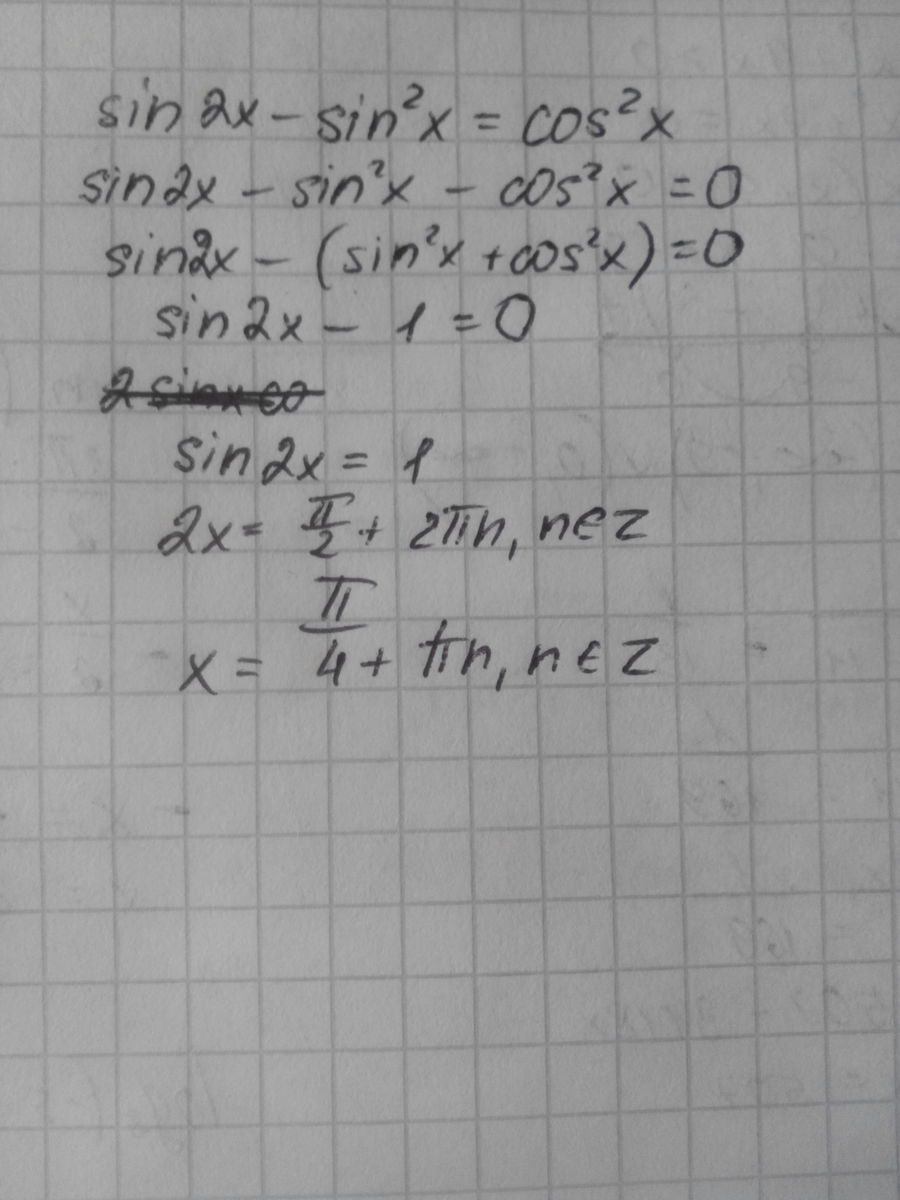 sin 2x - sin²x = cos²x
sin2x - sin²x - cos²x = 0
sin2x - (sin²x + cos²x) = 0
sin 2x - 1 = 0
2 sinx co
sin 2x = 1
2x = π/2 + 2πn, n∈Z
x = π/4 + πn, n∈Z